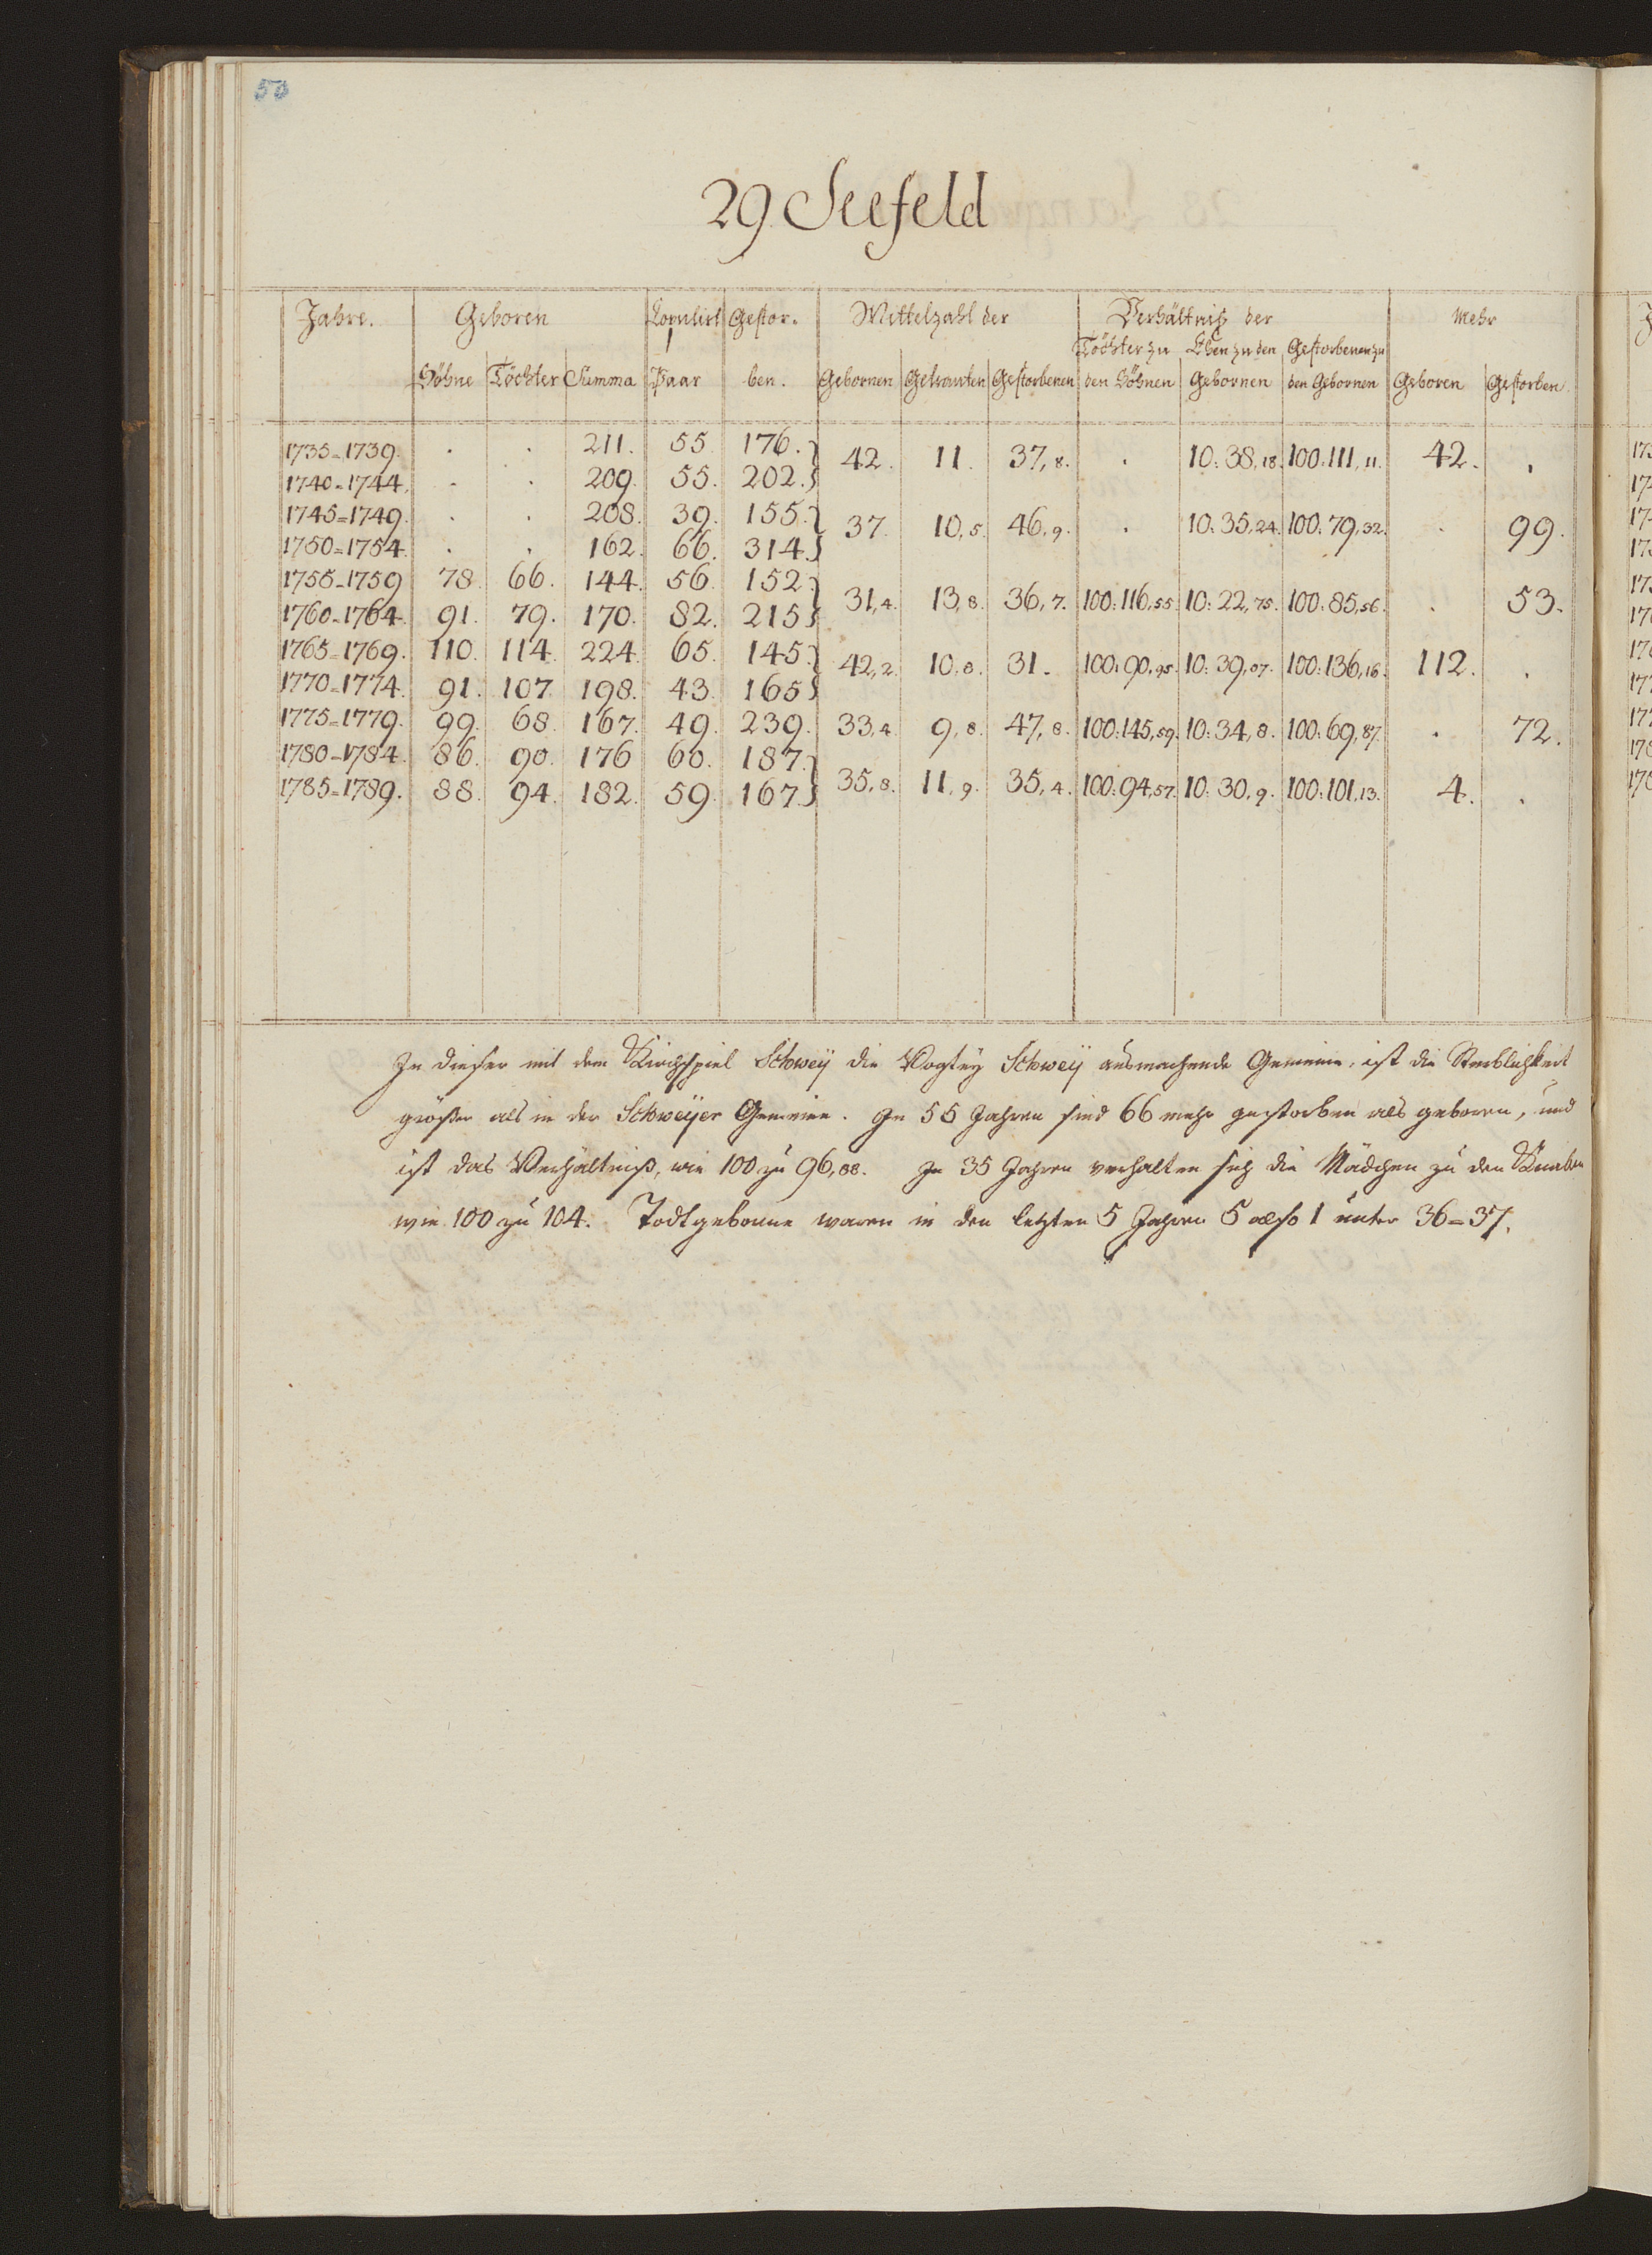 50
29 Seefeld
Jahre. Geboren Copulirt Gestor- Mittelzahl der Verhältniß der Mehr
Töchter zu Ehen zu den Gestorbenen zu
Söhne Töchter Summa Paar ben. Gebornen Getrauten Gestorbenen den Söhnen Gebornen den Gebornen Geboren Gestorben
1735=1739. . . 211. 55 176. 42. 11. 37,8. . 10:38,18. 100:111,11. 42. .
1740=1744. . . 209. 55. 202.
1745=1749. . . 208. 39. 155. 37. 10,5. 46,9. . 10:35,24. 100:79,32. . 99.
1750=1754. . . 162. 66. 314.
1755=1759 78. 66. 144. 56. 152. 31,4. 13,8. 36,7. 100:116,55. 10:22,75. 100:85,56. . 53.
1760=1764. 91. 79. 170. 82. 215
1765=1769. 110. 114. 224. 65. 145. 42,2. 10,8. 31. 100:90,95. 10:39,07. 100:136,16. 112. .
1770=1774. 91. 107. 198. 43. 165
1775=1779. 99. 68. 167. 49. 239. 33,4. 9,8. 47,8. 100:145,59. 10:34,8. 100:69,87. . 72.
1780=1784. 86. 90. 176 60. 187. 35,8. 11,9. 35,4. 100:94,57. 10:30,9. 100:101,13. 4. .
1785=1789. 88. 94. 182. 59. 167.
In dieser mit dem Kirchspiel Schweÿ die Vogteÿ Schweÿ ausmachende Gemeine, ist die Sterblichkeit
größer als in der Schweÿer Gemeine. In 55 Jahren sind 66 mehr gestorben als geboren, und
ist das Verhältniß, wie 100 zu 96,88. In 35 Jahren verhalten sich die Mädchen zu den Knaben
wie 100 zu 104. Todtgeborne waren in den letzten 5 Jahren 5 also 1 unter 36=37.